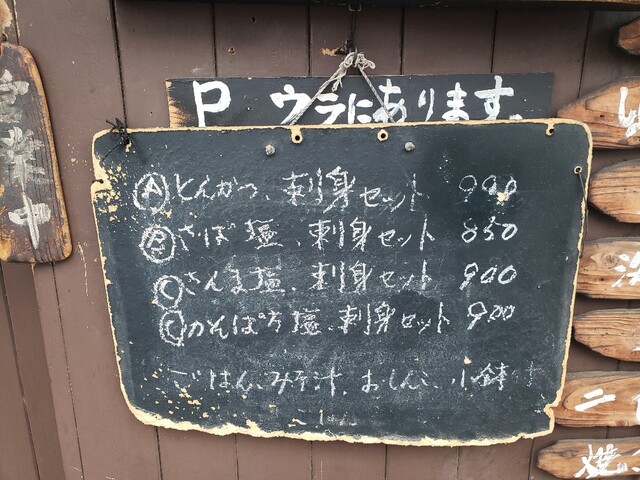 P ウラにあります。
営業中
Ⓐとんかつ、刺身セット 990
Ⓑさば塩、刺身セット 850
Ⓒさんま塩、刺身セット 900
Ⓒかんぱち塩、刺身セット 900
ごはん、みそ汁、おしんこ、小鉢